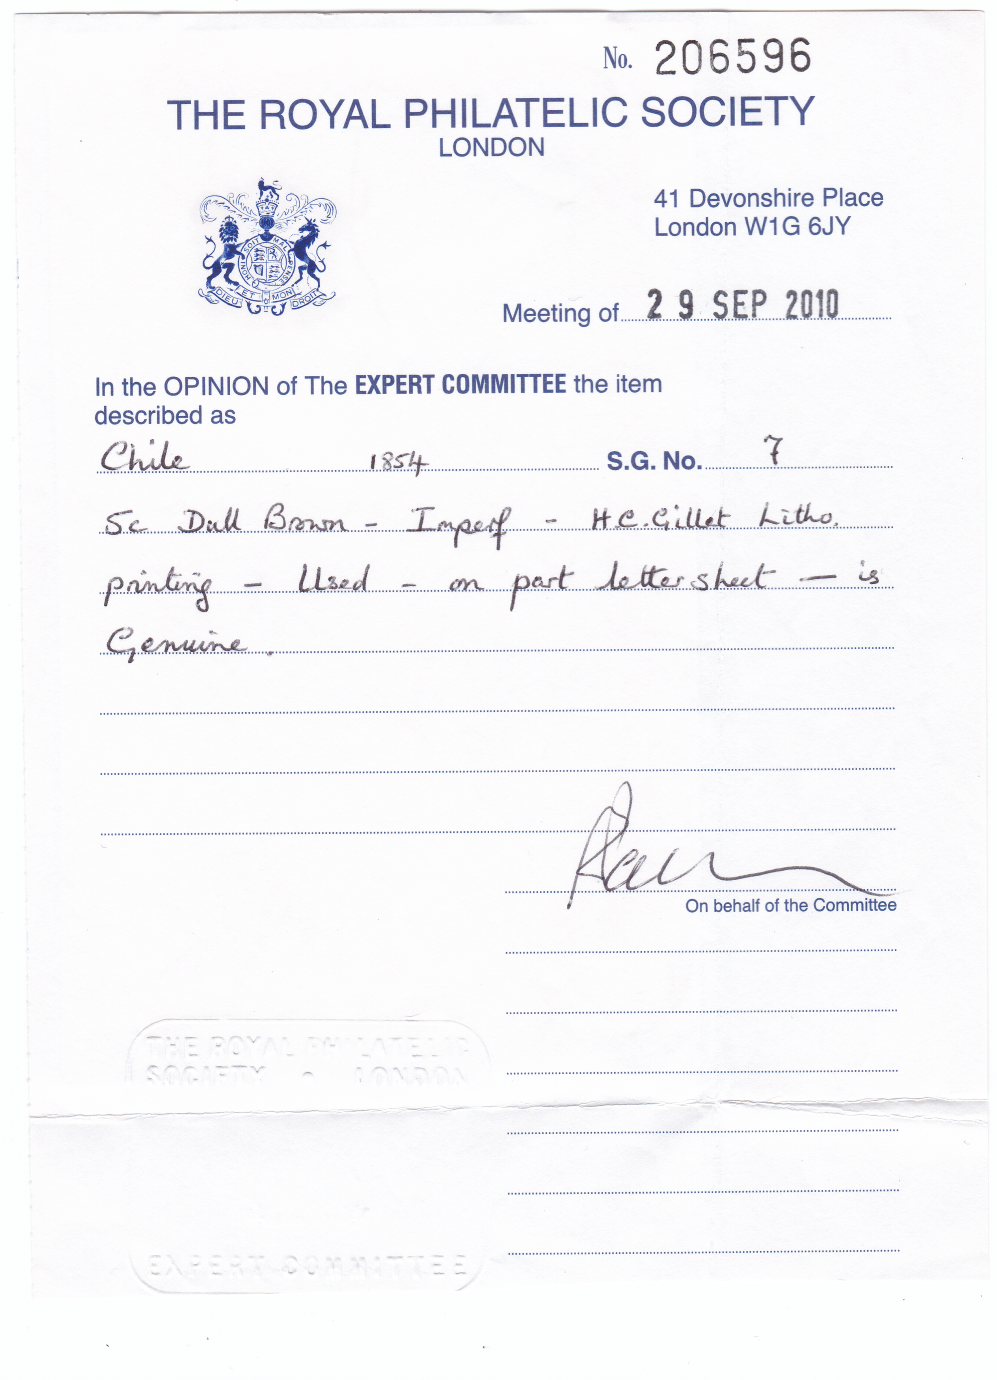 No. 206596
THE ROYAL PHILATELIC SOCIETY
LONDON
41 Devonshire Place
London W1G 6JY
HONI SOIT QUI MAL Y PENSE
DIEU ET MON DROIT
Meeting of 29 SEP 2010
In the OPINION of The EXPERT COMMITTEE the item
described as
Chile 1854 S.G. No. 7
5c Dull Brown - Imperf - H.C. Gillet Litho.
printing - Used - on part lettersheet - is
Genuine.
On behalf of the Committee
THE ROYAL PHILATELIC
SOCIETY • LONDON
EXPERT COMMITTEE